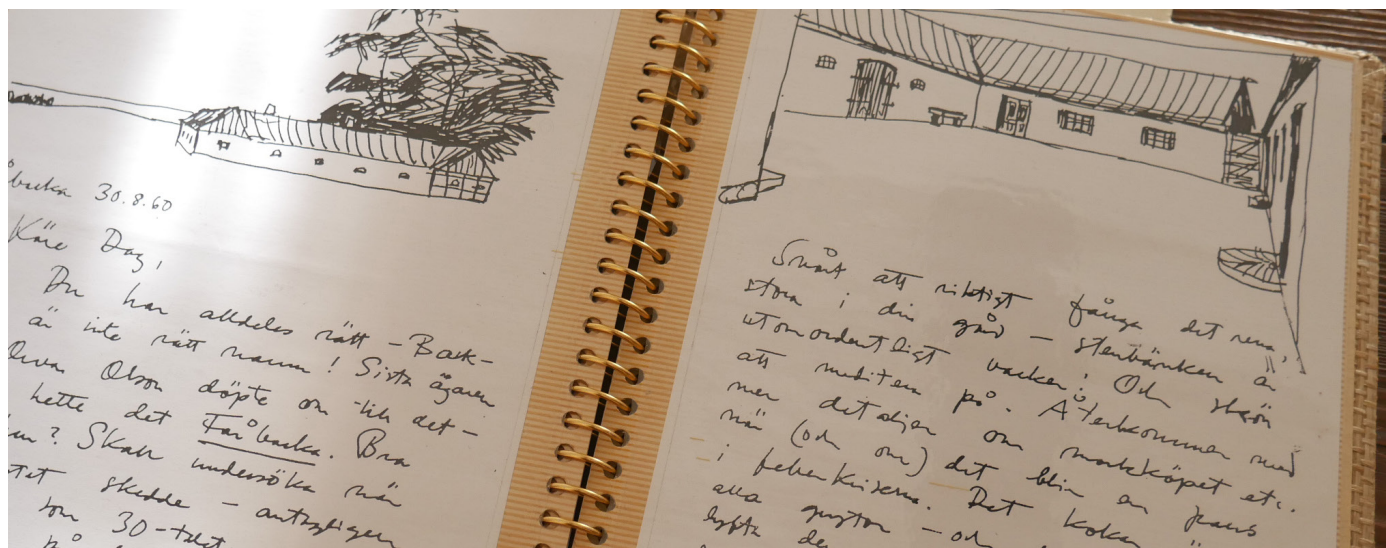 30.8.60
Käre Dag,
Du har alldeles rätt - Back-
är inte rätt namn! Sista ägaren
Olson döpte om till det -
hette det Fårbacka. Bra
? Skall undersöka när
skedde - antagligen
30-talet
på
Svårt att riktigt fånga det rena,
stora i din gård - stenbänken är
utomordentligt vacker! Och skön
att meditera på. Återkommer med
mer detaljer om markköpet etc.
när (och om) det blir en paus
i feberkriserna. Det kokar i
alla grytor - och
lyfta de